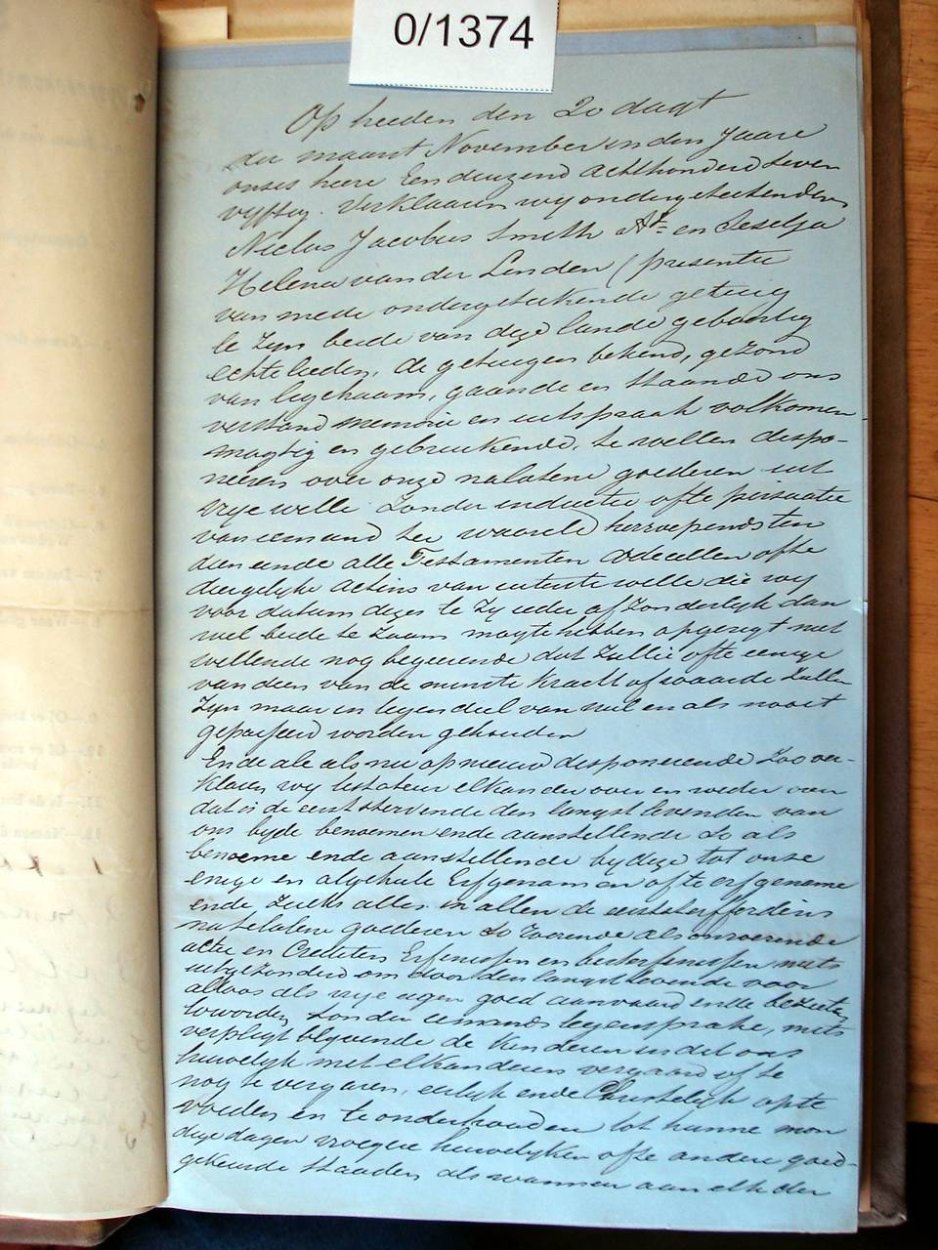 0/1374
Op heeden den 20 dagt
der maant November in den Jaare
onses heere Eenduuzend achthonderd seven
vyftig. Verklaaren wy ondergeteekenden
Niclas Jacobus Smith en Seselja
Helena van der Lenden (presentie
van mede ondergeteekende getuig
te zyn beide van deze lande geboortig
echte lieden, de getuigen bekend, gezond
van legchaam, gaande en staande ons
verstand memorie en uutspraak volkomen
magtig en gebruukende, te wellen despo-
neeren over onze nalatene goederen uut
vrye wille zonder inductie ofte persuatie
van iemand ter waarelt herroepende ten
dien einde alle Testamenten Codecillen ofte
diergelyke actens van uuterste wille die wy
voor datum dezes te zy ieder afzonderlyk dan
wel beide te zaam mogte hebben opgeregt niet
willende nog begeerende dat zullie ofte eenige
van dien van de minste kracht of waarde zullen
zyn maar in tegendeel van nul en als nooit
gepasseerd worden gehouden
Ende ale als nu op nieuw desponerende Zoo ver-
klaren wy testateur elkander over en weder van
dat is de eerststervende den langst levenden van
ons byde benoemen ende aanstellende zo als
benoeme ende aanstellende by deze tot onse
enige en algehele Erfgenamen ofte erfgename
ende zulks alles in allen de eerststerffordins
natelatene goederen zo roerende als onroerende
actie en Crediten Erfenissen en besterfenissen niets
uitgezonderd om door den langstlevende voor
altoos als vrye eigen goed aanvaard ende bezeeten
te worden zonder iemands tegensprake, mits
verpligt blyvende de kinderen in dit ons
huwelyk met elkanderen vergaard of te
nog te vergaren, eerlyk ende Christelyk opte
voeden en te onderhouden tot hunne mon
dige dagen vroegere huwelyken ofte andere goed-
gekeurde staaden als wanneer aan elk der